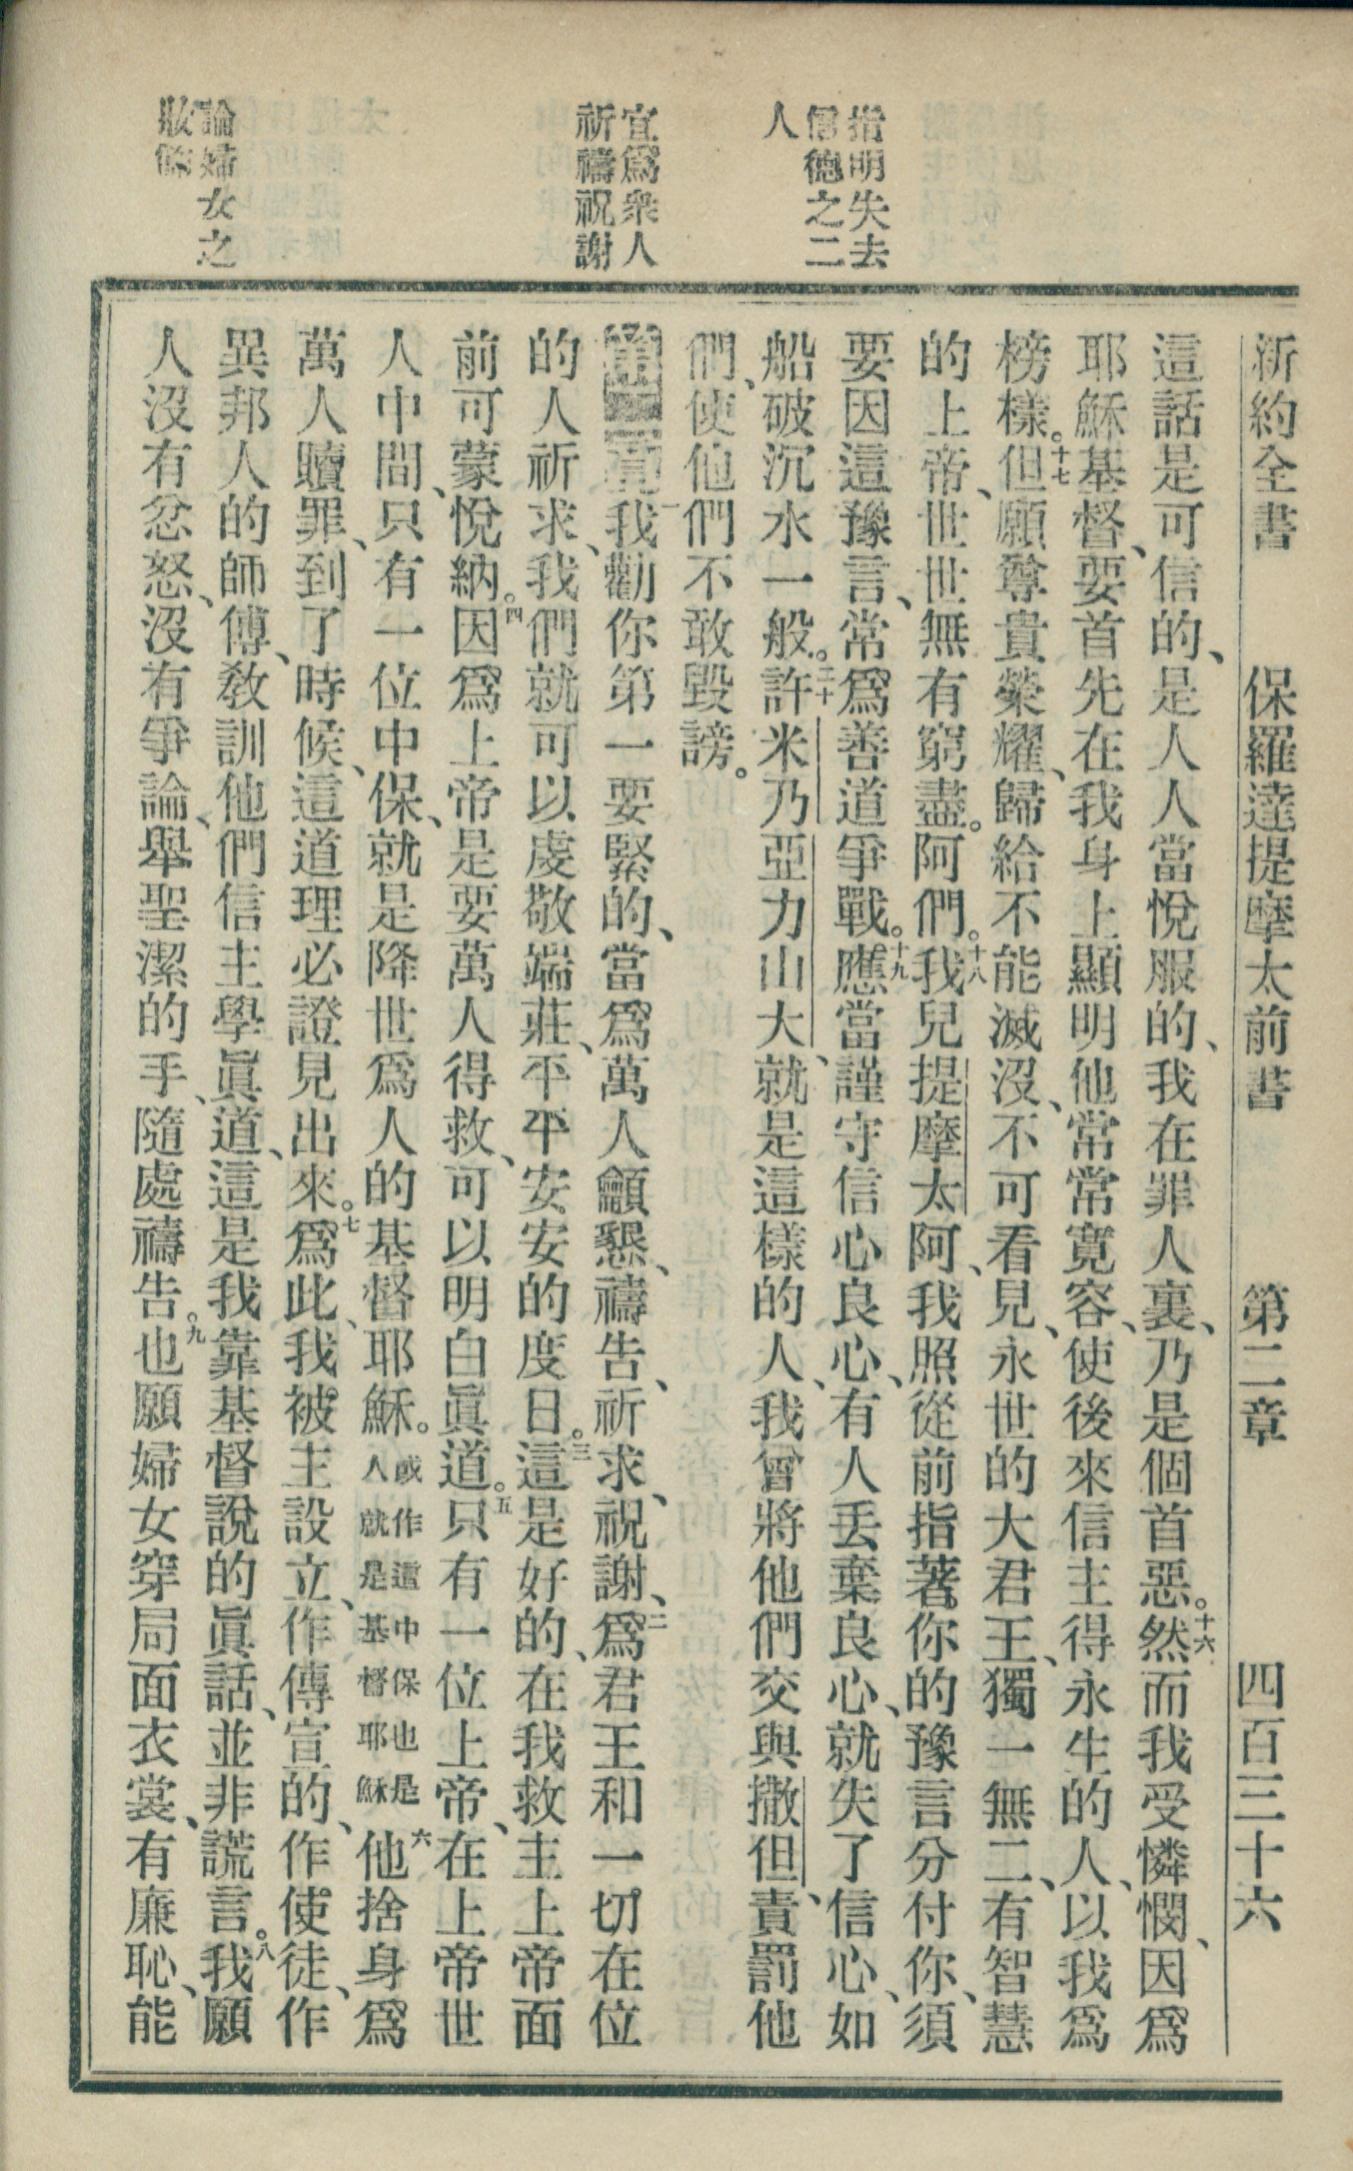 新約全書 保羅達提摩太前書 第二章 四百三十六
指明失去
信德之二
人
宜爲衆人
祈禱祝謝
論婦女之
妝飾
這話是可信的、是人人當悅服的、我在罪人裏、乃是個首惡。十六然而我受憐憫、因爲
耶穌基督、要首先在我身上顯明他常常寬容、使後來信主得永生的人、以我爲
榜樣。十七但願尊貴榮耀、歸給不能滅沒、不可看見、永世的大君王、獨一無二、有智慧
的上帝、世世無有窮盡。阿們。十八我兒提摩太阿、我照從前指著你的豫言分付你、須
要因這豫言、常爲善道爭戰。十九應當謹守信心良心、有人丢棄良心、就失了信心、如
船破沉水一般。二十許米乃亞力山大、就是這樣的人、我曾將他們交與撒但、責罰他
們、使他們不敢毀謗。
第二章一我勸你第一要緊的、當爲萬人籲懇、禱告、祈求、祝謝、二爲君王和一切在位
的人祈求、我們就可以虔敬端莊、平平安安的度日。三這是好的、在我救主上帝面
前可蒙悅納。四因爲上帝是要萬人得救、可以明白眞道。五只有一位上帝、在上帝世
人中間、只有一位中保、就是降世爲人的基督耶穌。或作這中保也是人就是基督耶穌六他捨身爲
萬人贖罪、到了時候、這道理必證見出來。七爲此、我被主設立、作傳宣的、作使徒、作
異邦人的師傅、敎訓他們信主學眞道、這是我靠基督說的眞話、並非謊言。八我願
人沒有忿怒、沒有爭論、舉聖潔的手、隨處禱告。九也願婦女穿局面衣裳、有廉恥、能